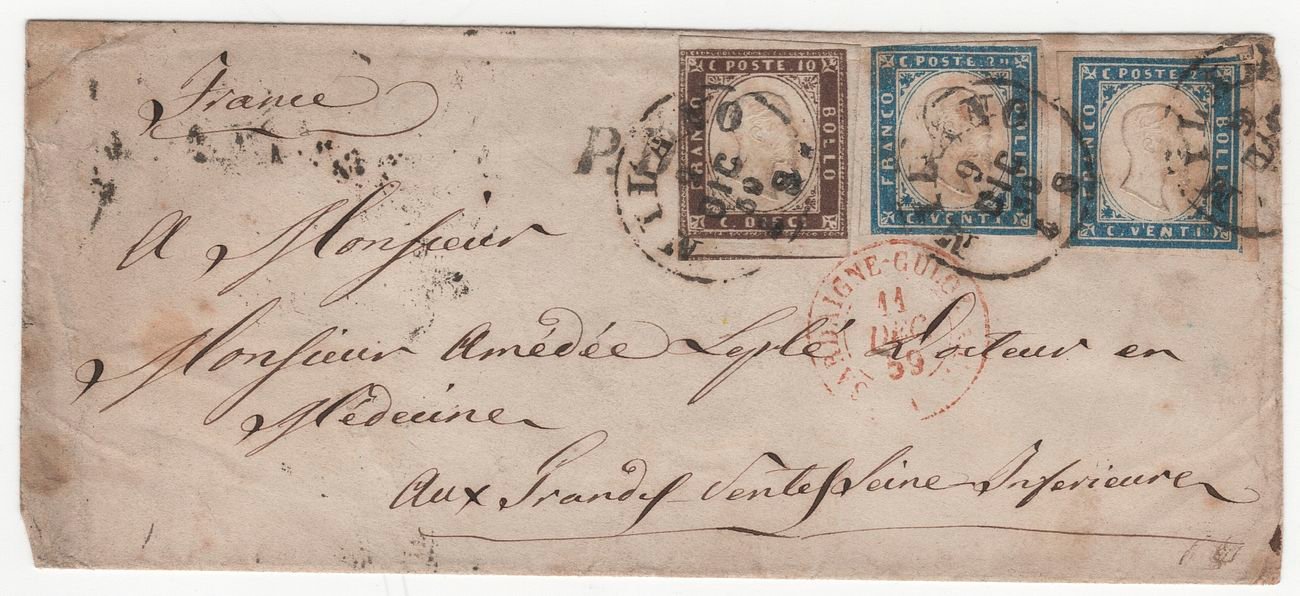 France
C POSTE 10
FRANCO
BOLLO
C. DIECI
C POSTE 20
FRANCO
BOLLO
C. VENTI
C POSTE 2
FRANCO
BOLLO
C. VENTI
P.
MILANO
DIC
59
MILANO
9
DIC
59
MIL
SARDAIGNE-CULOZ
11
DEC
59
A Monsieur
Monsieur Amédée Leplé Docteur en
Médecine
Aux Grandes Ventes Seine Inferieure